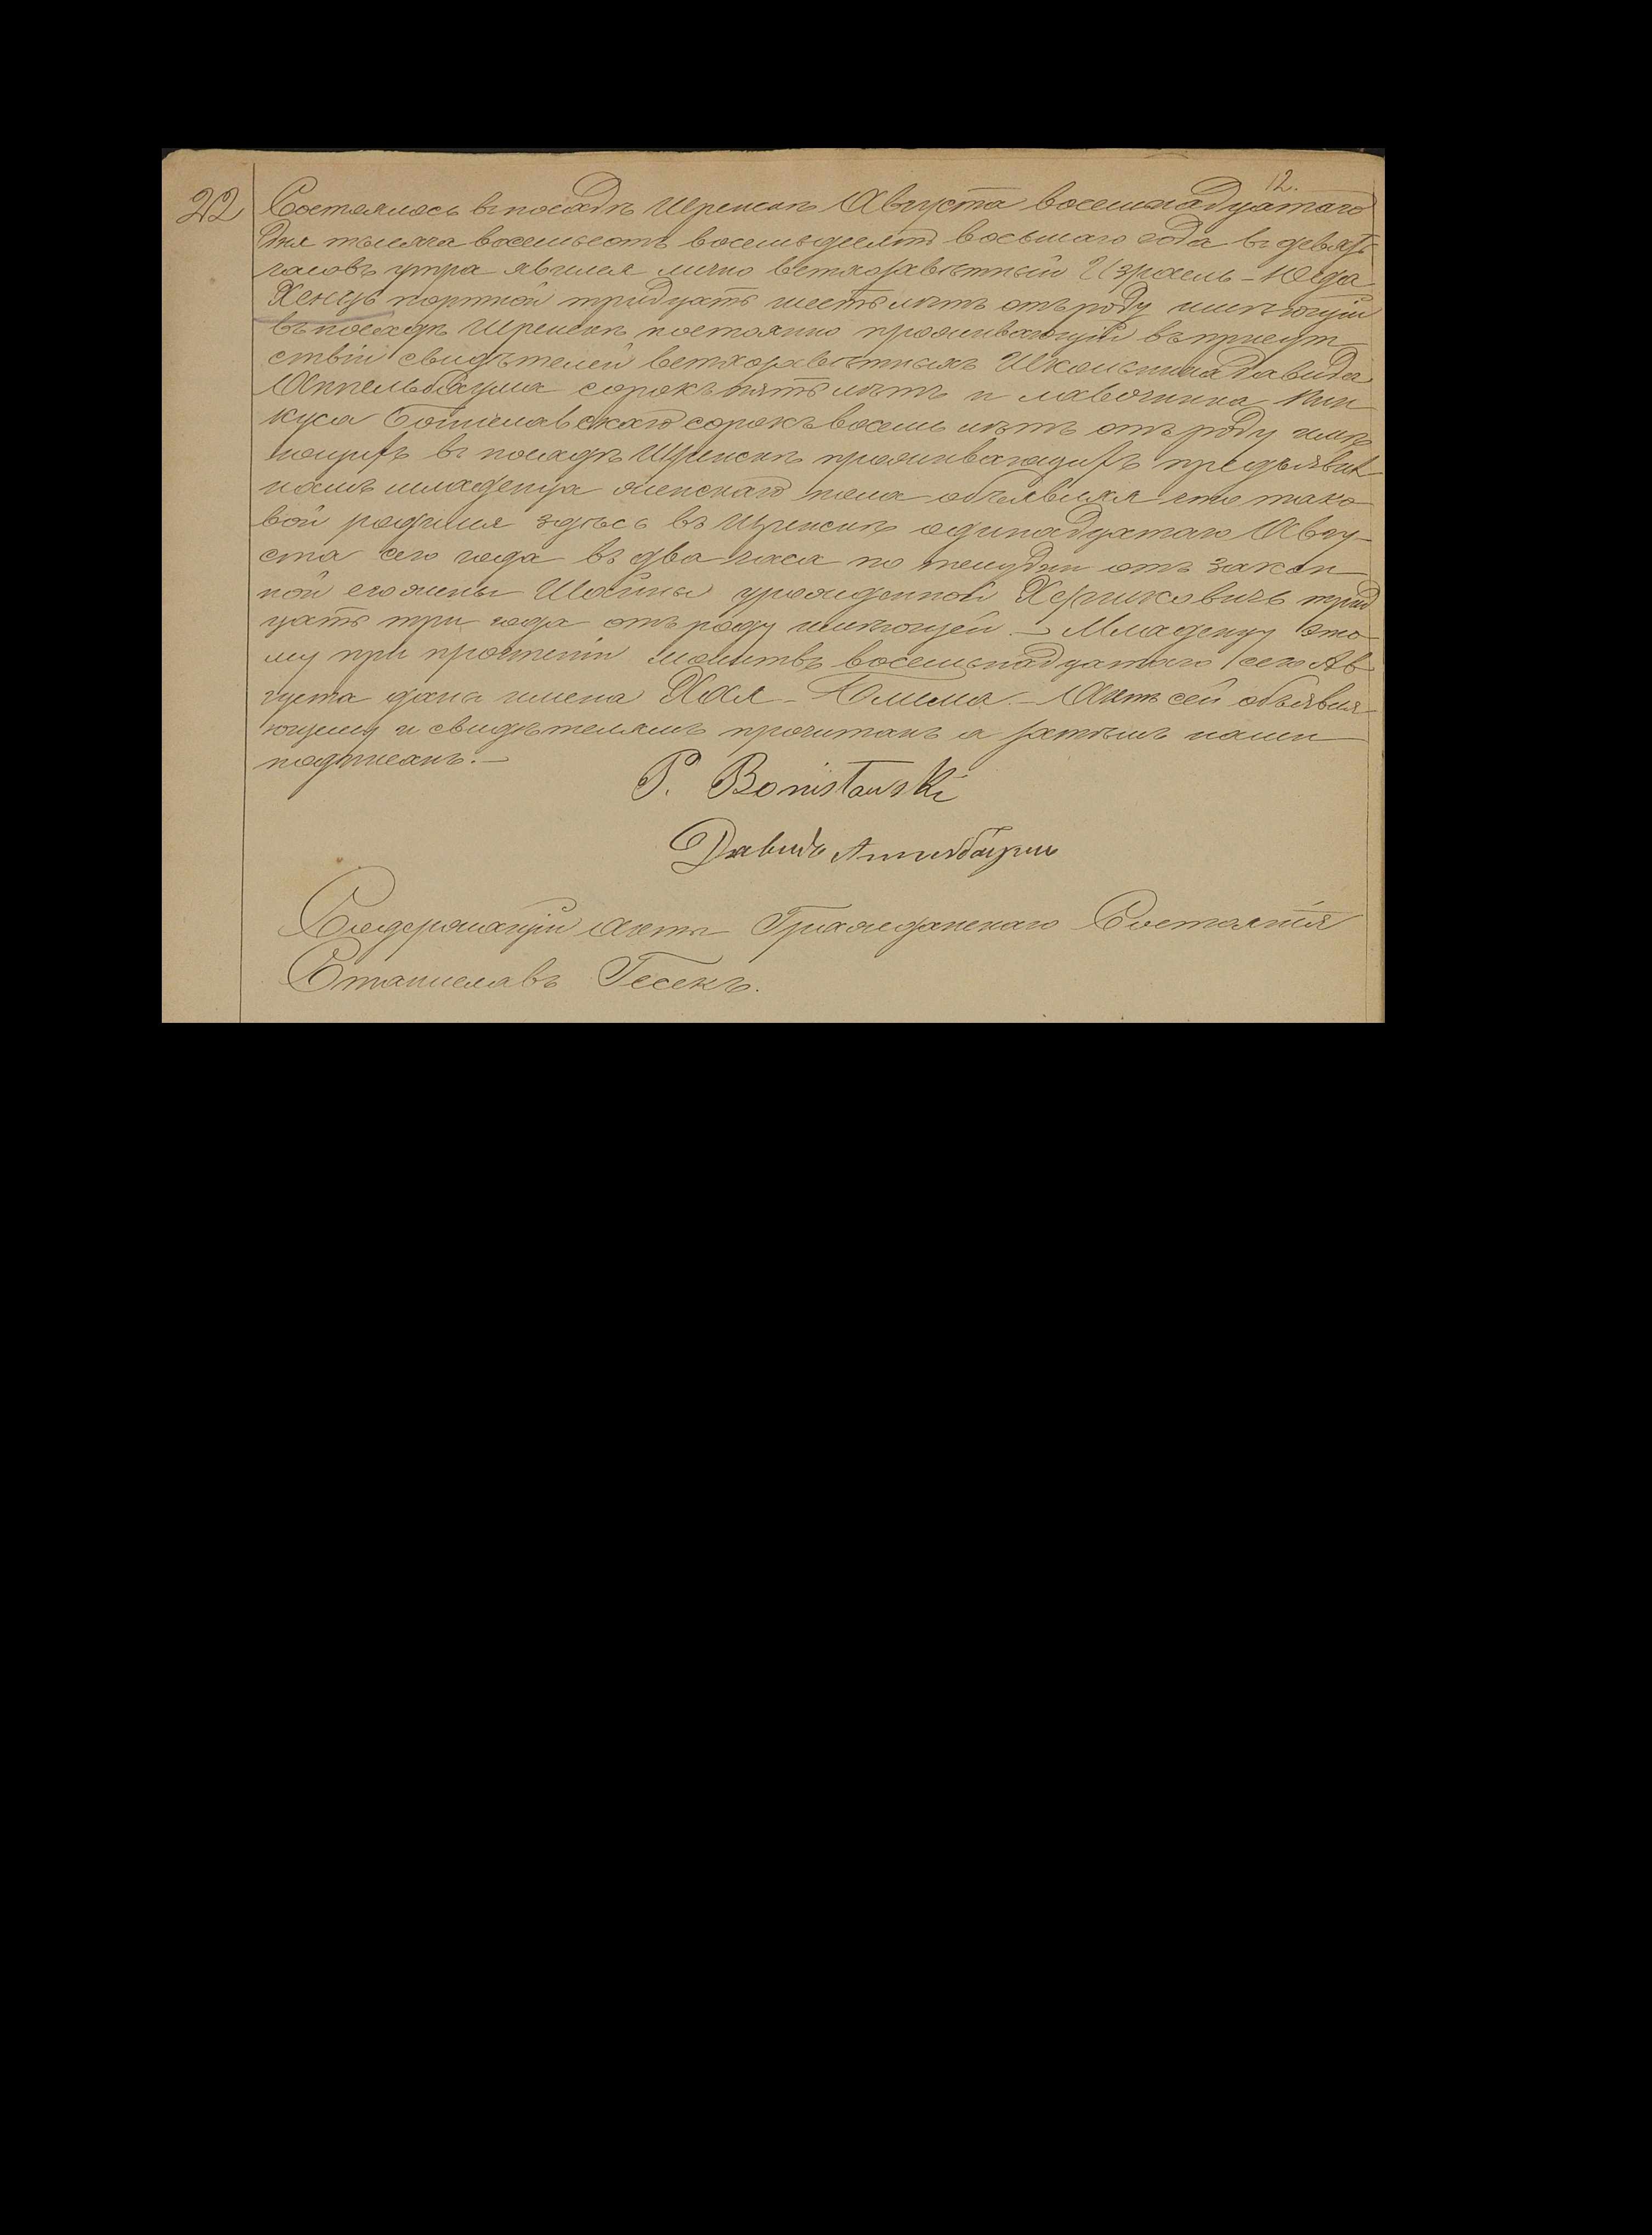 12.
22
Состоялось въ посадѣ Шренскѣ Августа восемнадцатаго
дня тысяча восемьсотъ восемьдесятъ восьмаго года въ девять
часовъ утра явился лично ветхозавѣтный Израель-Юда
портной тридцать шесть лѣтъ отъ роду имѣющій
въ посадѣ Шренскѣ постоянно проживающій въ присут-
ствіи свидѣтелей ветхозавѣтныхъ Школьника Давида
Аппельбаума сорокъ пять лѣтъ и лавочника Пин
куса Бониславскаго сорокъ восемь лѣтъ отъ роду имѣ
ющихъ въ посадѣ Шренскѣ проживающихъ предъявил
намъ младенца женскаго пола объявляя что тако
вой родился здѣсь въ Шренскѣ одинадцатаго Авгу-
ста сего года въ два часа по полудни отъ закон
ной его жены урожденной трид
цать три года отъ роду имѣющей. - Младенцу это
му при прочтеніи молитвъ восемьнадцатаго сего Ав
густа даны имена Хая - Актъ сей объявля-
ющему и свидѣтелямъ прочитанъ а затѣмъ нами
подписанъ. -
P. Bonisławski
Давидъ Аппельбаумъ
Содержащій Акты Гражданскаго Состоянія
Станиславъ Гесекъ.